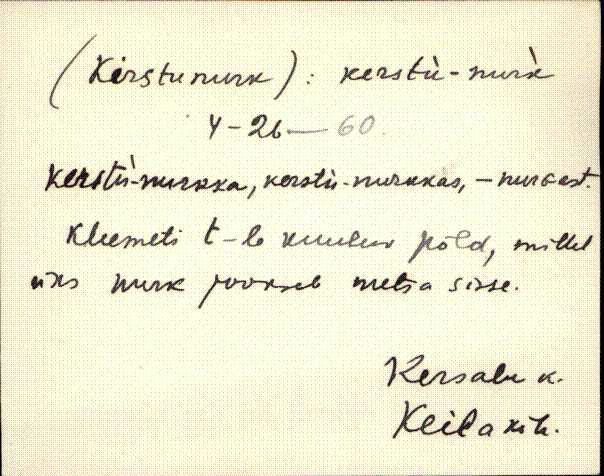 (Kirstunurk): kerstù-nuřk
4-26—60.
kerstù-nurkka, kerstù-nurkkas, -nurgast.
Kleemeti t-le kuuluv põld, millel
üks nurk jookseb metsa sisse.
Kersalu k.
Keila kih.